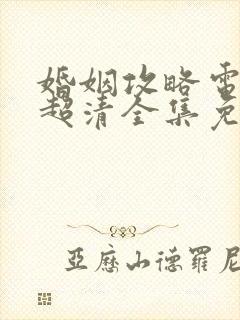 婚姻攻略电
超清全集免
亞歷山德羅尼